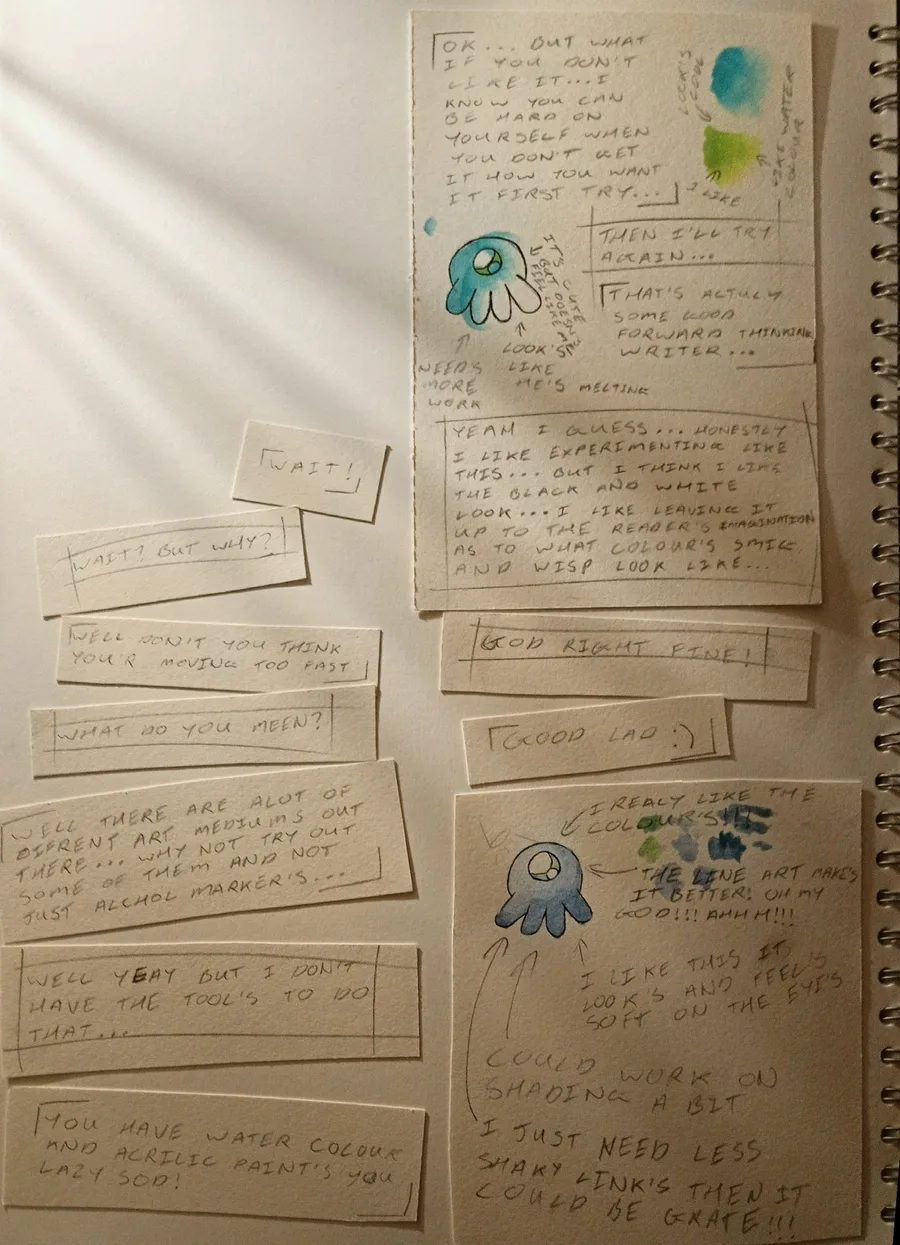 WAIT!
WAIT? BUT WHY?
WELL DON'T YOU THINK
YOU'R MOVING TOO FAST
WHAT DO YOU MEEN?
WELL THERE ARE ALOT OF
DIFERENT ART MEDIUMS OUT
THERE... WHY NOT TRY OUT
SOME OF THEM AND NOT
JUST ALCHOL MARKER'S...
WELL YEAY BUT I DON'T
HAVE THE TOOL'S TO DO
THAT...
YOU HAVE WATER COLOUR
AND ACRILIC PAINT'S YOU
LAZY SOD!
OK... BUT WHAT
IF YOU DON'T
LIKE IT...I
KNOW YOU CAN
BE HARD ON
YOURSELF WHEN
YOU DON'T GET
IT HOW YOU WANT
IT FIRST TRY...
LOOK'S
COOL
I LIKE
WATER
COLOUR
I LIKE
THEN I'LL TRY
AGAIN...
IT'S CUTE
BUT DOESN'T
FEEL LIKE ME
LOOK'S
LIKE
HE'S MELTING
NEED'S
MORE
WORK
THAT'S ACTULY
SOME GOOD
FORWARD THINKING
WRITER...
YEAH I GUESS... HONESTLY
I LIKE EXPERIMENTING LIKE
THIS... BUT I THINK I LIKE
THE BLACK AND WHITE
LOOK... I LIKE LEAVING IT
UP TO THE READER'S IMAGINATION
AS TO WHAT COLOUR'S SMIG
AND WISP LOOK LIKE...
GOD RIGHT FINE!
GOOD LAD :)
I REALY LIKE THE
COLOUR'S!!!
THE LINE ART MAKES
IT BETTER! OH MY
GOD!!! AHHH!!!
I LIKE THIS IT
LOOK'S AND FEEL'S
SOFT ON THE EYE'S
COULD WORK ON
SHADING A BIT
I JUST NEED LESS
SHAKY LINK'S THEN IT
COULD BE GRATE!!!